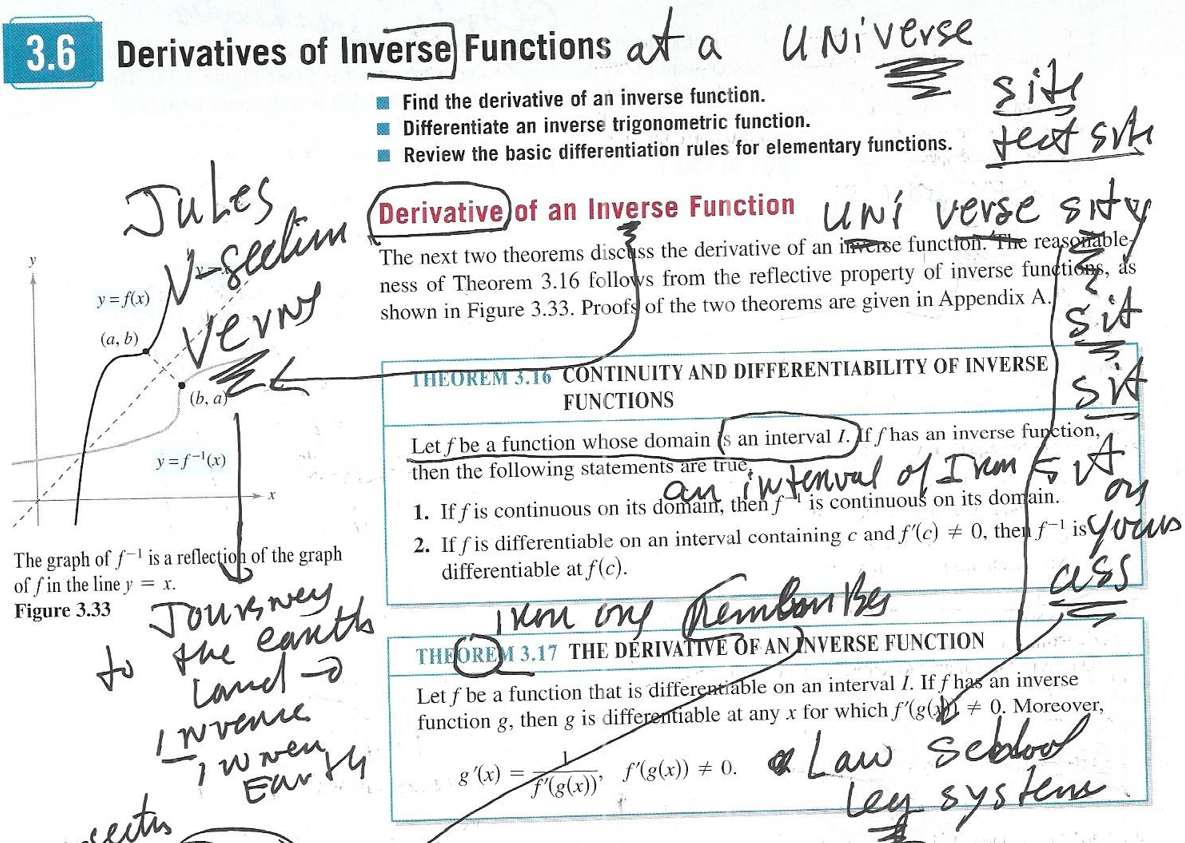 3.6 Derivatives of Inverse Functions at a UNiverse
■ Find the derivative of an inverse function.
■ Differentiate an inverse trigonometric function.
■ Review the basic differentiation rules for elementary functions.
site
test site
Derivative of an Inverse Function
uni verse sity
The next two theorems discuss the derivative of an inverse function. The reasonable-
ness of Theorem 3.16 follows from the reflective property of inverse functions, as
shown in Figure 3.33. Proofs of the two theorems are given in Appendix A.
sit
sit
Jules
V-section
Verns
y
y = f(x)
(a, b)
(b, a)
y = f⁻¹(x)
x
The graph of f⁻¹ is a reflection of the graph
of f in the line y = x.
Figure 3.33
to the earth
Land
Inverse
Inner
Earth
THEOREM 3.16 CONTINUITY AND DIFFERENTIABILITY OF INVERSE
FUNCTIONS
Let f be a function whose domain is an interval I. If f has an inverse function,
then the following statements are true.
an interval of Iron
sit
on
your
ass
1. If f is continuous on its domain, then f⁻¹ is continuous on its domain.
2. If f is differentiable on an interval containing c and f′(c) ≠ 0, then f⁻¹ is
differentiable at f(c).
Iron
THEOREM 3.17 THE DERIVATIVE OF AN INVERSE FUNCTION
Let f be a function that is differentiable on an interval I. If f has an inverse
function g, then g is differentiable at any x for which f′(g(x)) ≠ 0. Moreover,
g′(x) = 1/f′(g(x)), f′(g(x)) ≠ 0.
Law School
leg system